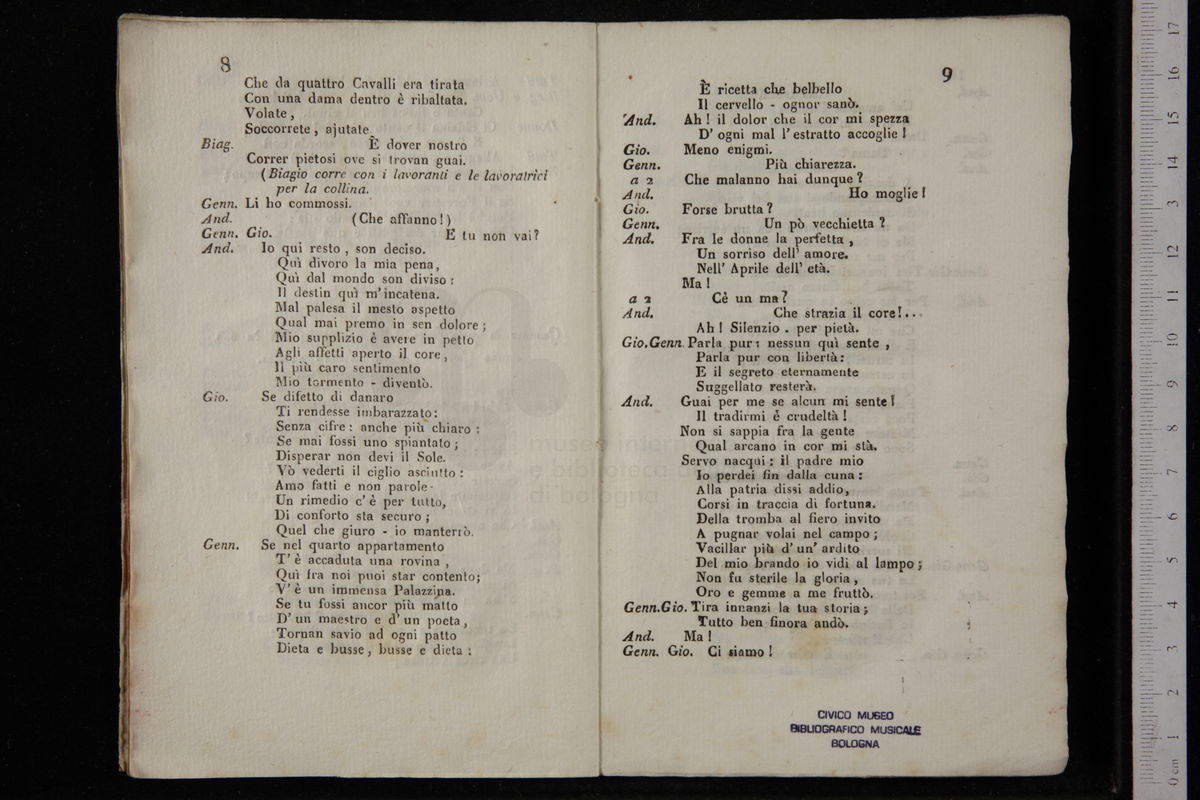 8
Che da quattro Cavalli era tirata
Con una dama dentro è ribaltata.
Volate,
Soccorrete, ajutate.
Biag. È dover nostro
Correr pietosi ove si trovan guai.
(Biagio corre con i lavoranti e le lavoratrici
per la collina.
Genn. Li ho commossi.
And. (Che affanno!)
Genn. Gio. E tu non vai?
And. Io qui resto, son deciso.
Quì divoro la mia pena,
Quì dal mondo son diviso:
Il destin quì m'incatena.
Mal palesa il mesto aspetto
Qual mai premo in sen dolore;
Mio supplizio è avere in petto
Agli affetti aperto il core,
Il più caro sentimento
Mio tormento - diventò.
Gio. Se difetto di danaro
Ti rendesse imbarazzato:
Senza cifre: anche più chiaro:
Se mai fossi uno spiantato;
Disperar non devi il Sole.
Vò vederti il ciglio asciutto:
Amo fatti e non parole.
Un rimedio c'è per tutto,
Di conforto sta securo;
Quel che giuro - io manterrò.
Genn. Se nel quarto appartamento
T'è accaduta una rovina,
Quì fra noi puoi star contento;
V'è un immensa Palazzina.
Se tu fossi ancor più matto
D'un maestro e d'un poeta,
Tornan savio ad ogni patto
Dieta e busse, busse e dieta:
9
È ricetta che belbello
Il cervello - ognor sanò.
And. Ah! il dolor che il cor mi spezza
D'ogni mal l'estratto accoglie!
Gio. Meno enigmi.
Genn. Più chiarezza.
a 2 Che malanno hai dunque?
And. Ho moglie!
Gio. Forse brutta?
Genn. Un pò vecchietta?
And. Fra le donne la perfetta,
Un sorriso dell'amore.
Nell'Aprile dell'età.
Ma!
a 2 Cè un ma?
And. Che strazia il core!..
Ah! Silenzio. per pietà.
Gio. Genn. Parla pur: nessun quì sente,
Parla pur con libertà:
E il segreto eternamente
Suggellato resterà.
And. Guai per me se alcun mi sente!
Il tradirmi è crudeltà!
Non si sappia fra la gente
Qual arcano in cor mi stà.
Servo nacqui: il padre mio
Io perdei fin dalla cuna:
Alla patria dissi addio,
Corsi in traccia di fortuna.
Della tromba al fiero invito
A pugnar volai nel campo;
Vacillar più d'un'ardito
Del mio brando io vidi al lampo;
Non fu sterile la gloria,
Oro e gemme a me fruttò.
Genn. Gio. Tira innanzi la tua storia;
Tutto ben finora andò.
And. Ma!
Genn. Gio. Ci siamo!
CIVICO MUSEO
BIBLIOGRAFICO MUSICALE
BOLOGNA